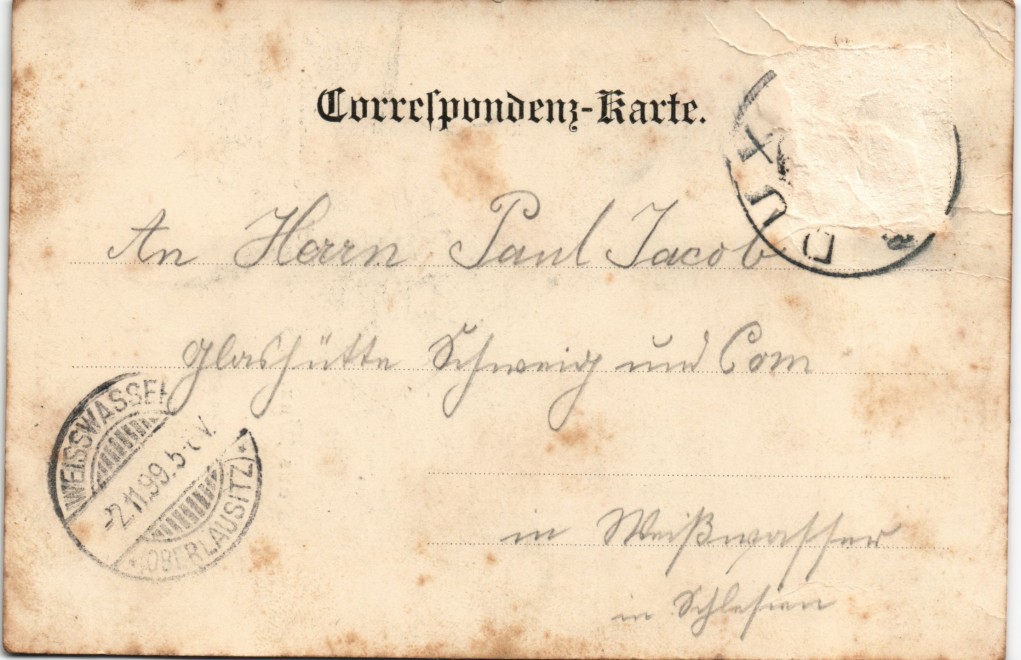 Correspondenz-Karte.
DUX
An Herrn Paul Jacob
Glashütte Schweig und Com
WEISSWASSER
2.11.99.5-6V.
*(OBERLAUSITZ)*
in Weißwasser
in Schlesien